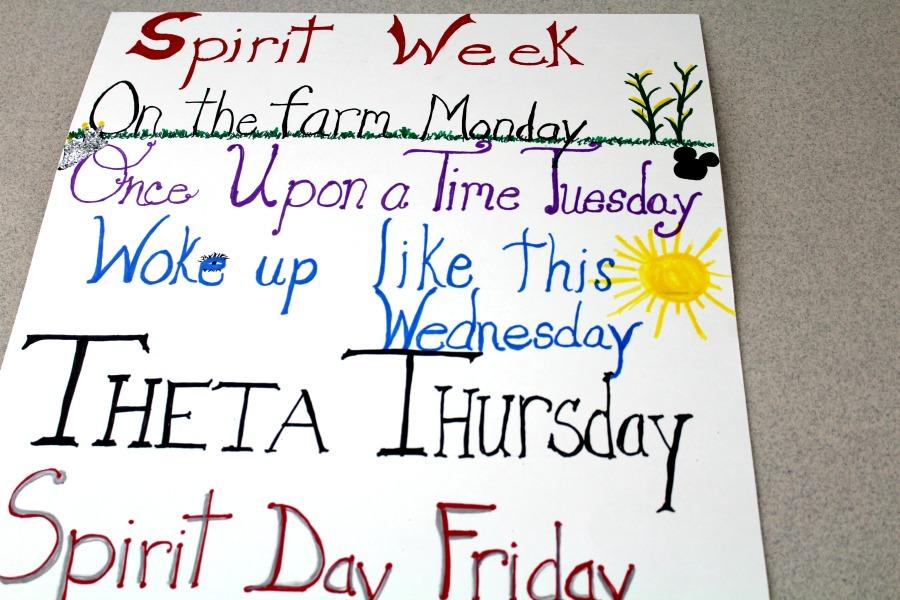 Spirit Week
On the farm Monday
Once Upon a Time Tuesday
Woke up like this
Wednesday
THETA THursday
Spirit Day Friday